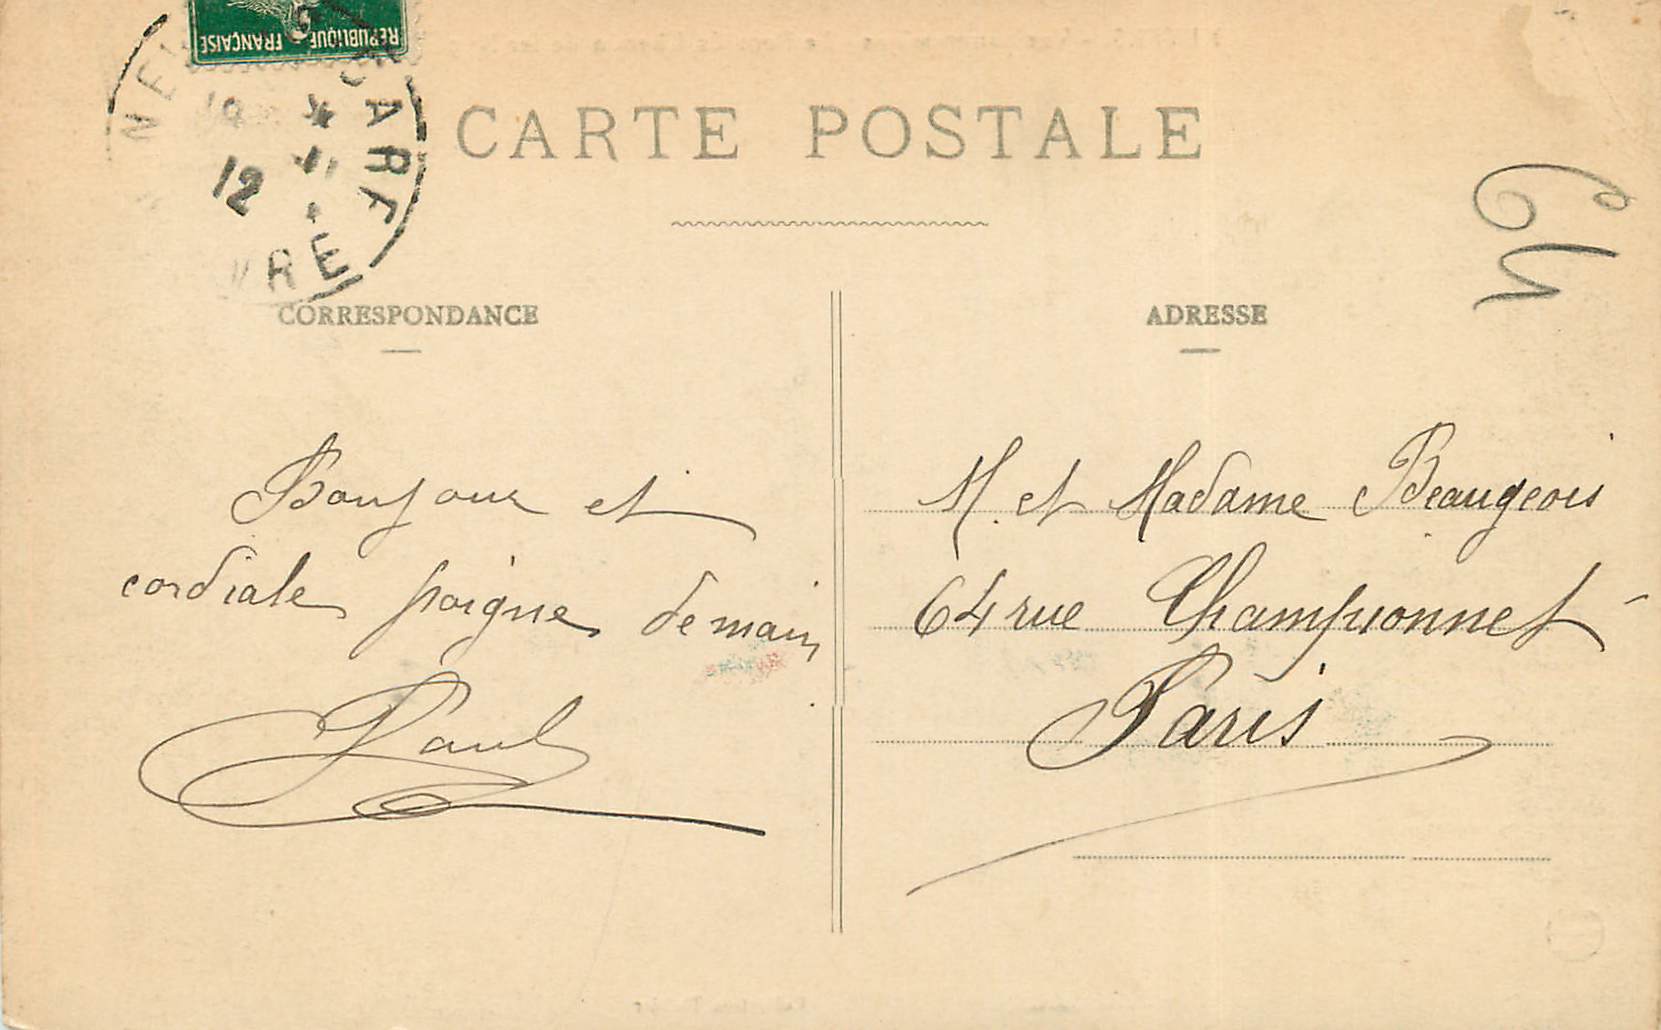 RÉPUBLIQUE FRANÇAISE
12
CARTE POSTALE
64
CORRESPONDANCE
ADRESSE
Bonjour et
cordiale poigne de main
Paul
M. et Madame Beaugeois
64 rue Championnet
Paris